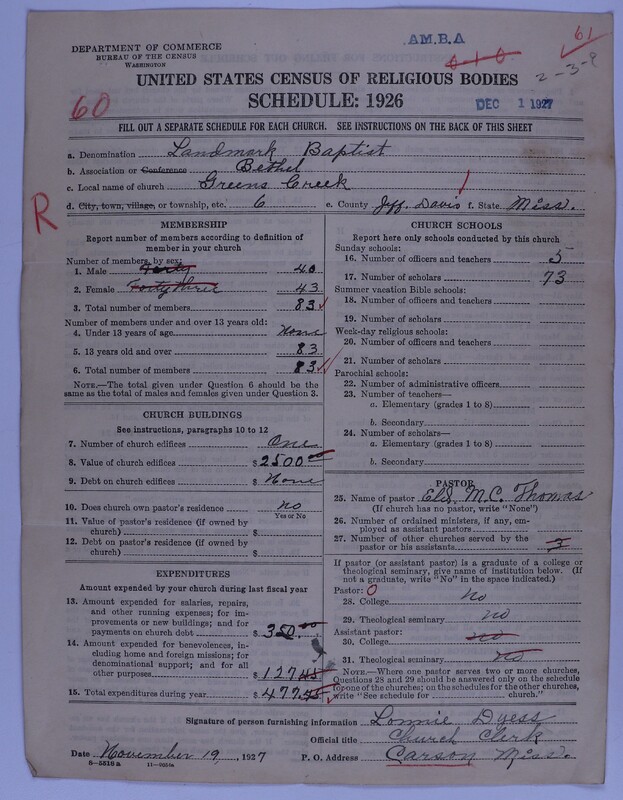 A.M.B.A
61
DEPARTMENT OF COMMERCE
BUREAU OF THE CENSUS
WASHINGTON
2-3-8
UNITED STATES CENSUS OF RELIGIOUS BODIES
60
SCHEDULE: 1926
DEC 1 1927
FILL OUT A SEPARATE SCHEDULE FOR EACH CHURCH. SEE INSTRUCTIONS ON THE BACK OF THIS SHEET
a. Denomination Landmark Baptist
b. Association or Conference Bethel
c. Local name of church Greens Creek
d. City, town, village, or township, etc. 6 e. County Jeff. Davis f. State Miss.
R
MEMBERSHIP
Report number of members according to definition of
member in your church
Number of members, by sex:
1. Male Forty 40
2. Female Forty three 43
3. Total number of members 83
Number of members under and over 13 years old:
4. Under 13 years of age None
5. 13 years old and over 83
6. Total number of members 83
NOTE.—The total given under Question 6 should be
the same as the total of males and females given under Question 3.
CHURCH BUILDINGS
See instructions, paragraphs 10 to 12
7. Number of church edifices One
8. Value of church edifices $ 2500.00
9. Debt on church edifices $ None
10. Does church own pastor's residence no
Yes or No
11. Value of pastor's residence (if owned by
church) $
12. Debt on pastor's residence (if owned by
church) $
EXPENDITURES
Amount expended by your church during last fiscal year
13. Amount expended for salaries, repairs,
and other running expenses; for im-
provements or new buildings; and for
payments on church debt $ 350.00
14. Amount expended for benevolences,
including home and foreign missions; for
denominational support; and for all
other purposes $ 127 45
15. Total expenditures during year $ 477 45
CHURCH SCHOOLS
Report here only schools conducted by this church
Sunday schools:
16. Number of officers and teachers 5
17. Number of scholars 73
Summer vacation Bible schools:
18. Number of officers and teachers
19. Number of scholars
Week-day religious schools:
20. Number of officers and teachers
21. Number of scholars
Parochial schools:
22. Number of administrative officers
23. Number of teachers—
a. Elementary (grades 1 to 8)
b. Secondary
24. Number of scholars—
a. Elementary (grades 1 to 8)
b. Secondary
PASTOR
25. Name of pastor Eld. M.C. Thomas
(If church has no pastor, write "None")
26. Number of ordained ministers, if any, em-
ployed as assistant pastors
27. Number of other churches served by the
pastor or his assistants 3
If pastor (or assistant pastor) is a graduate of a college or
theological seminary, give name of institution below. (If
not a graduate, write "No" in the space indicated.)
Pastor: 0
28. College no
29. Theological seminary no
Assistant pastor:
30. College no
31. Theological seminary no
NOTE.—Where one pastor serves two or more churches,
Questions 28 and 29 should be answered only on the schedule
for one of the churches; on the schedules for the other churches,
write "See schedule for church."
Signature of person furnishing information Lonnie Dyess
Official title Church Clerk
Date November 19, 1927 P. O. Address Carson Miss.
8-5518a 11-9050a